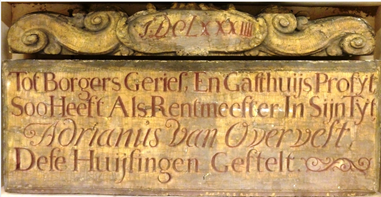 MDCLXXXIIII
Tot Borgers Gerief, En Gasthuijs Profyt,
Soo Heeft Als Rentmeester In Sijn Tyt
Adrianus Van Overvest,
Dese Huijsingen Gestelt.